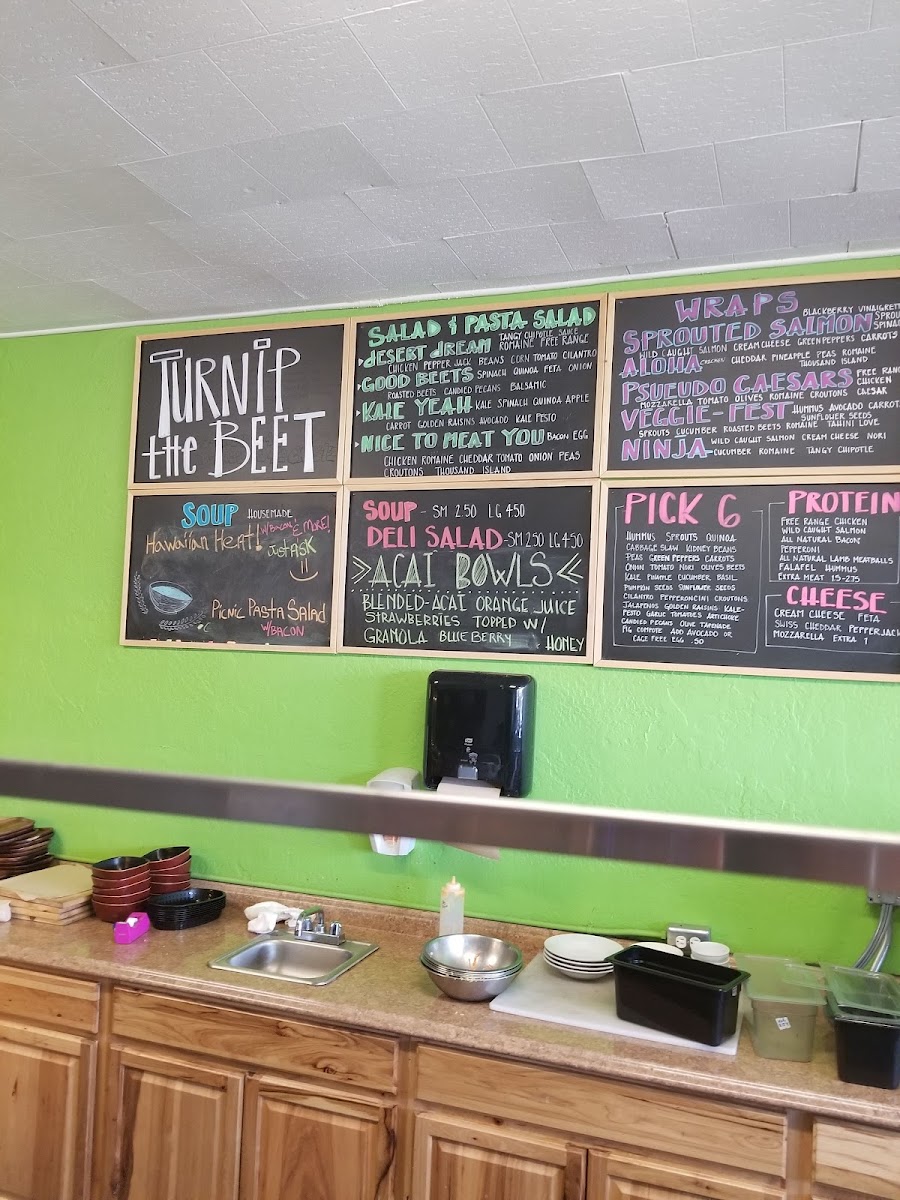 TURNIP
the BEET
SALAD & PASTA SALAD
DESERT DREAM TANGY CHIPOTLE SAUCE
ROMAINE FREE RANGE
CHICKEN PEPPER JACK BEANS CORN TOMATO CILANTRO
GOOD BEETS SPINACH QUINOA FETA ONION
ROASTED BEETS CANDIED PECANS BALSAMIC
KALE YEAH KALE SPINACH QUINOA APPLE
CARROT GOLDEN RAISINS AVOCADO KALE PESTO
NICE TO MEAT YOU BACON EGG
CHICKEN ROMAINE CHEDDAR TOMATO ONION PEAS
CROUTONS THOUSAND ISLAND
WRAPS
BLACKBERRY VINAIGRETT
SPROUTED SALMON SPROU
SPINA
WILD CAUGHT SALMON CREAM CHEESE GREEN PEPPERS CARROTS
ALOHA CHICKEN CHEDDAR PINEAPPLE PEAS ROMAINE
THOUSAND ISLAND
PSUEUDO CAESARS FREE RANG
CHICKEN
MOZZARELLA TOMATO OLIVES ROMAINE CROUTONS CAESAR
VEGGIE-FEST HUMMUS AVOCADO CARROT
SUNFLOWER SEEDS
SPROUTS CUCUMBER ROASTED BEETS ROMAINE TAHINI LOVE
NINJA WILD CAUGHT SALMON CREAM CHEESE NORI
CUCUMBER ROMAINE TANGY CHIPOTLE
SOUP HOUSEMADE
Hawaiian Heat! w/BACON & MORE!
Just ASK
Picnic Pasta Salad
w/BACON
SOUP - SM 2.50 LG 4.50
DELI SALAD - SM 2.50 LG 4.50
>AÇAÍ BOWLS<
BLENDED-ACAI ORANGE JUICE
STRAWBERRIES TOPPED W/
GRANOLA BLUEBERRY & HONEY
PICK 6
HUMMUS SPROUTS QUINOA
CABBAGE SLAW KIDNEY BEANS
PEAS GREEN PEPPERS CARROTS
ONION TOMATO NORI OLIVES BEETS
KALE PINEAPPLE CUCUMBER BASIL
PUMPKIN SEEDS SUNFLOWER SEEDS
CILANTRO PEPPERONCINI CROUTONS
JALAPENOS GOLDEN RAISINS KALE-
PESTO GARLIC TOMATOES ARTICHOKE
CANDIED PECANS OLIVE TAPENADE
FIG COMPOTE ADD AVOCADO OR
CAGE FREE EGG .50
PROTEIN
FREE RANGE CHICKEN
WILD CAUGHT SALMON
ALL NATURAL BACON
PEPPERONI
ALL NATURAL LAMB MEATBALLS
FALAFEL HUMMUS
EXTRA MEAT 1.5-2.75
CHEESE
CREAM CHEESE FETA
SWISS CHEDDAR PEPPERJACK
MOZZARELLA EXTRA 1